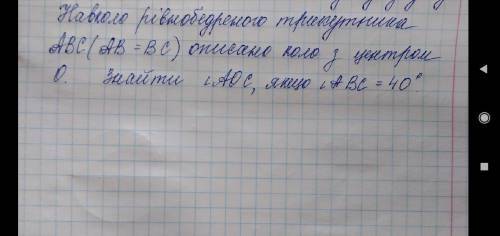 Навколо рівнобедреного трикутника
ABC (AB = BC) описано коло з центром
O. Знайти ∠AOC, якщо ∠ABC = 40°